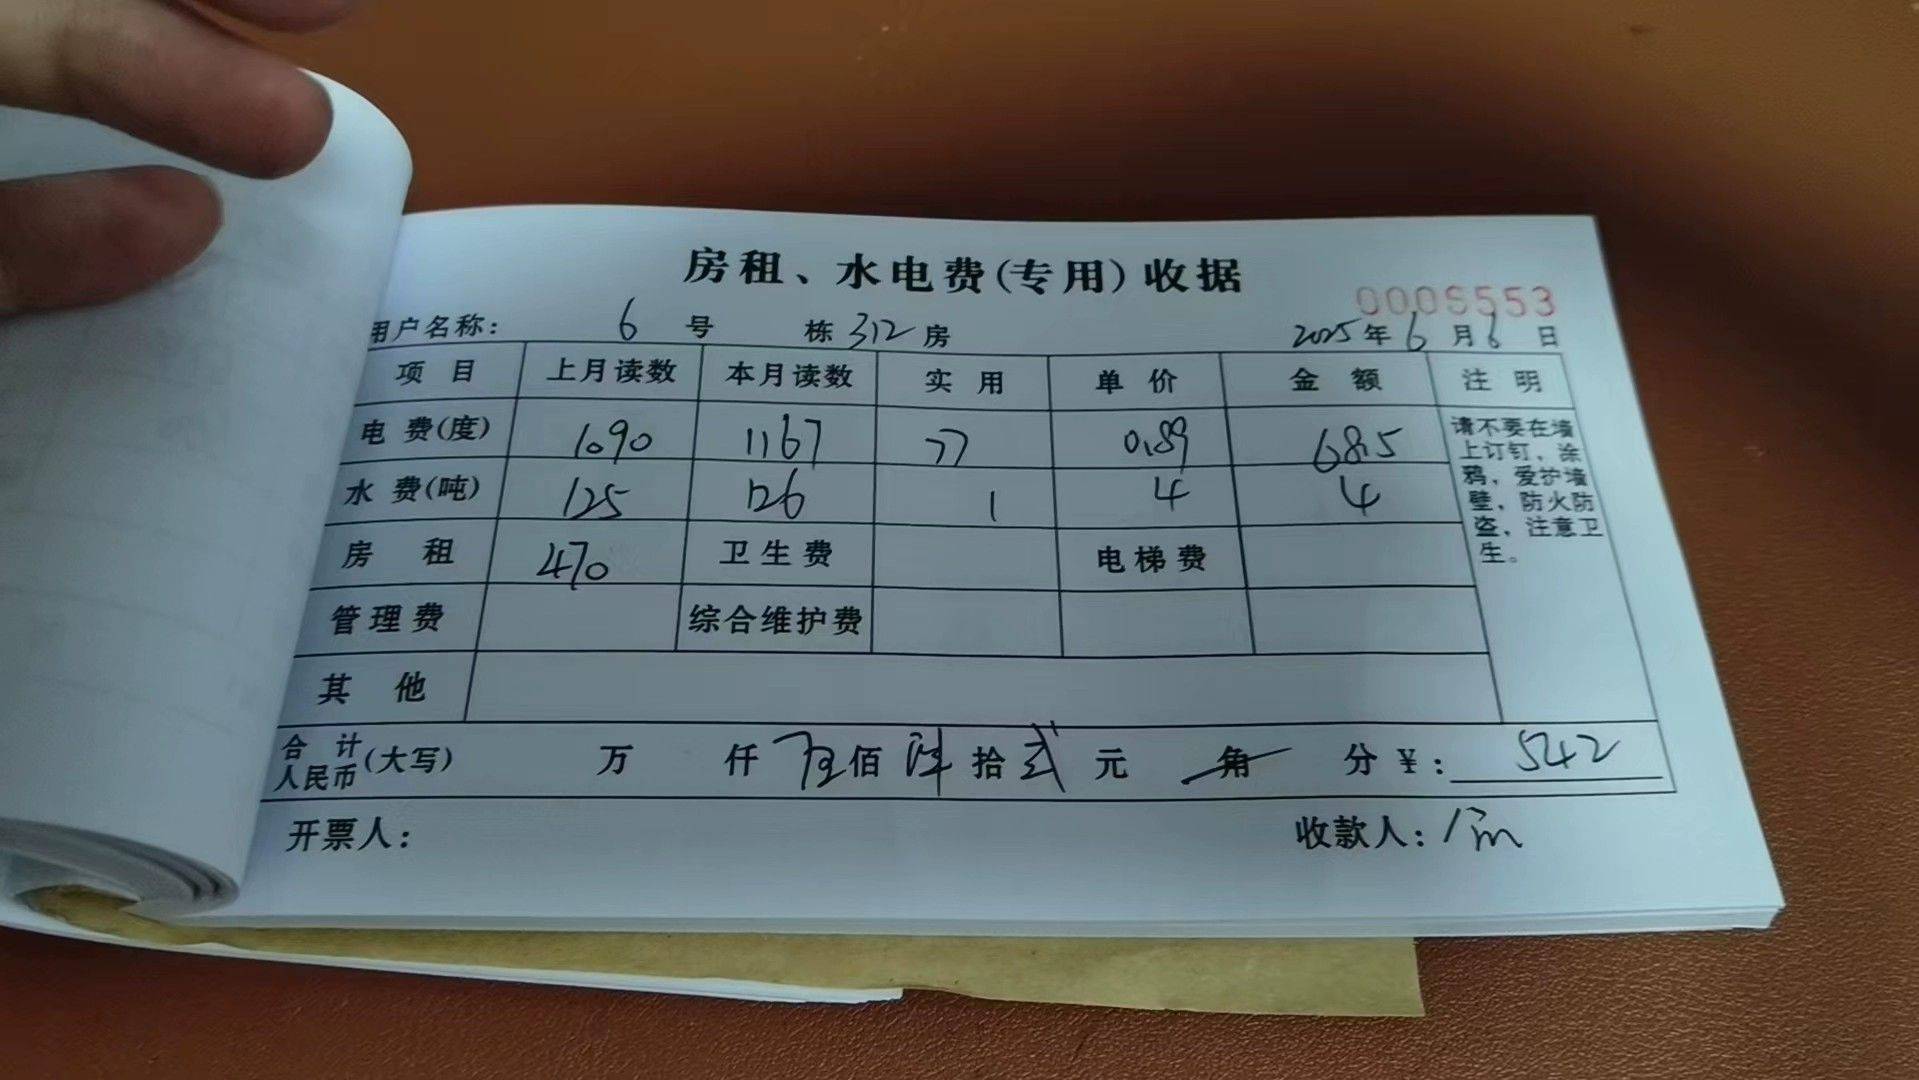 房租、水电费(专用)收据
0006553
用户名称: 6 号 栋 312 房 2025 年 6 月 6 日
项 目 上月读数 本月读数 实 用 单 价 金 额 注 明
电 费(度) 1090 1167 77 0.89 68.5
水 费(吨) 125 126 1 4 4
房 租 470 卫生费 电梯费
管理费 综合维护费
其 他
请不要在墙
上订钉,涂
鸦,爱护墙
壁,防火防
盗,注意卫
生。
合 计
人民币
(大写) 万 仟 伍 佰 拾 贰 元 角 分 ¥: 542
开票人: 收款人: